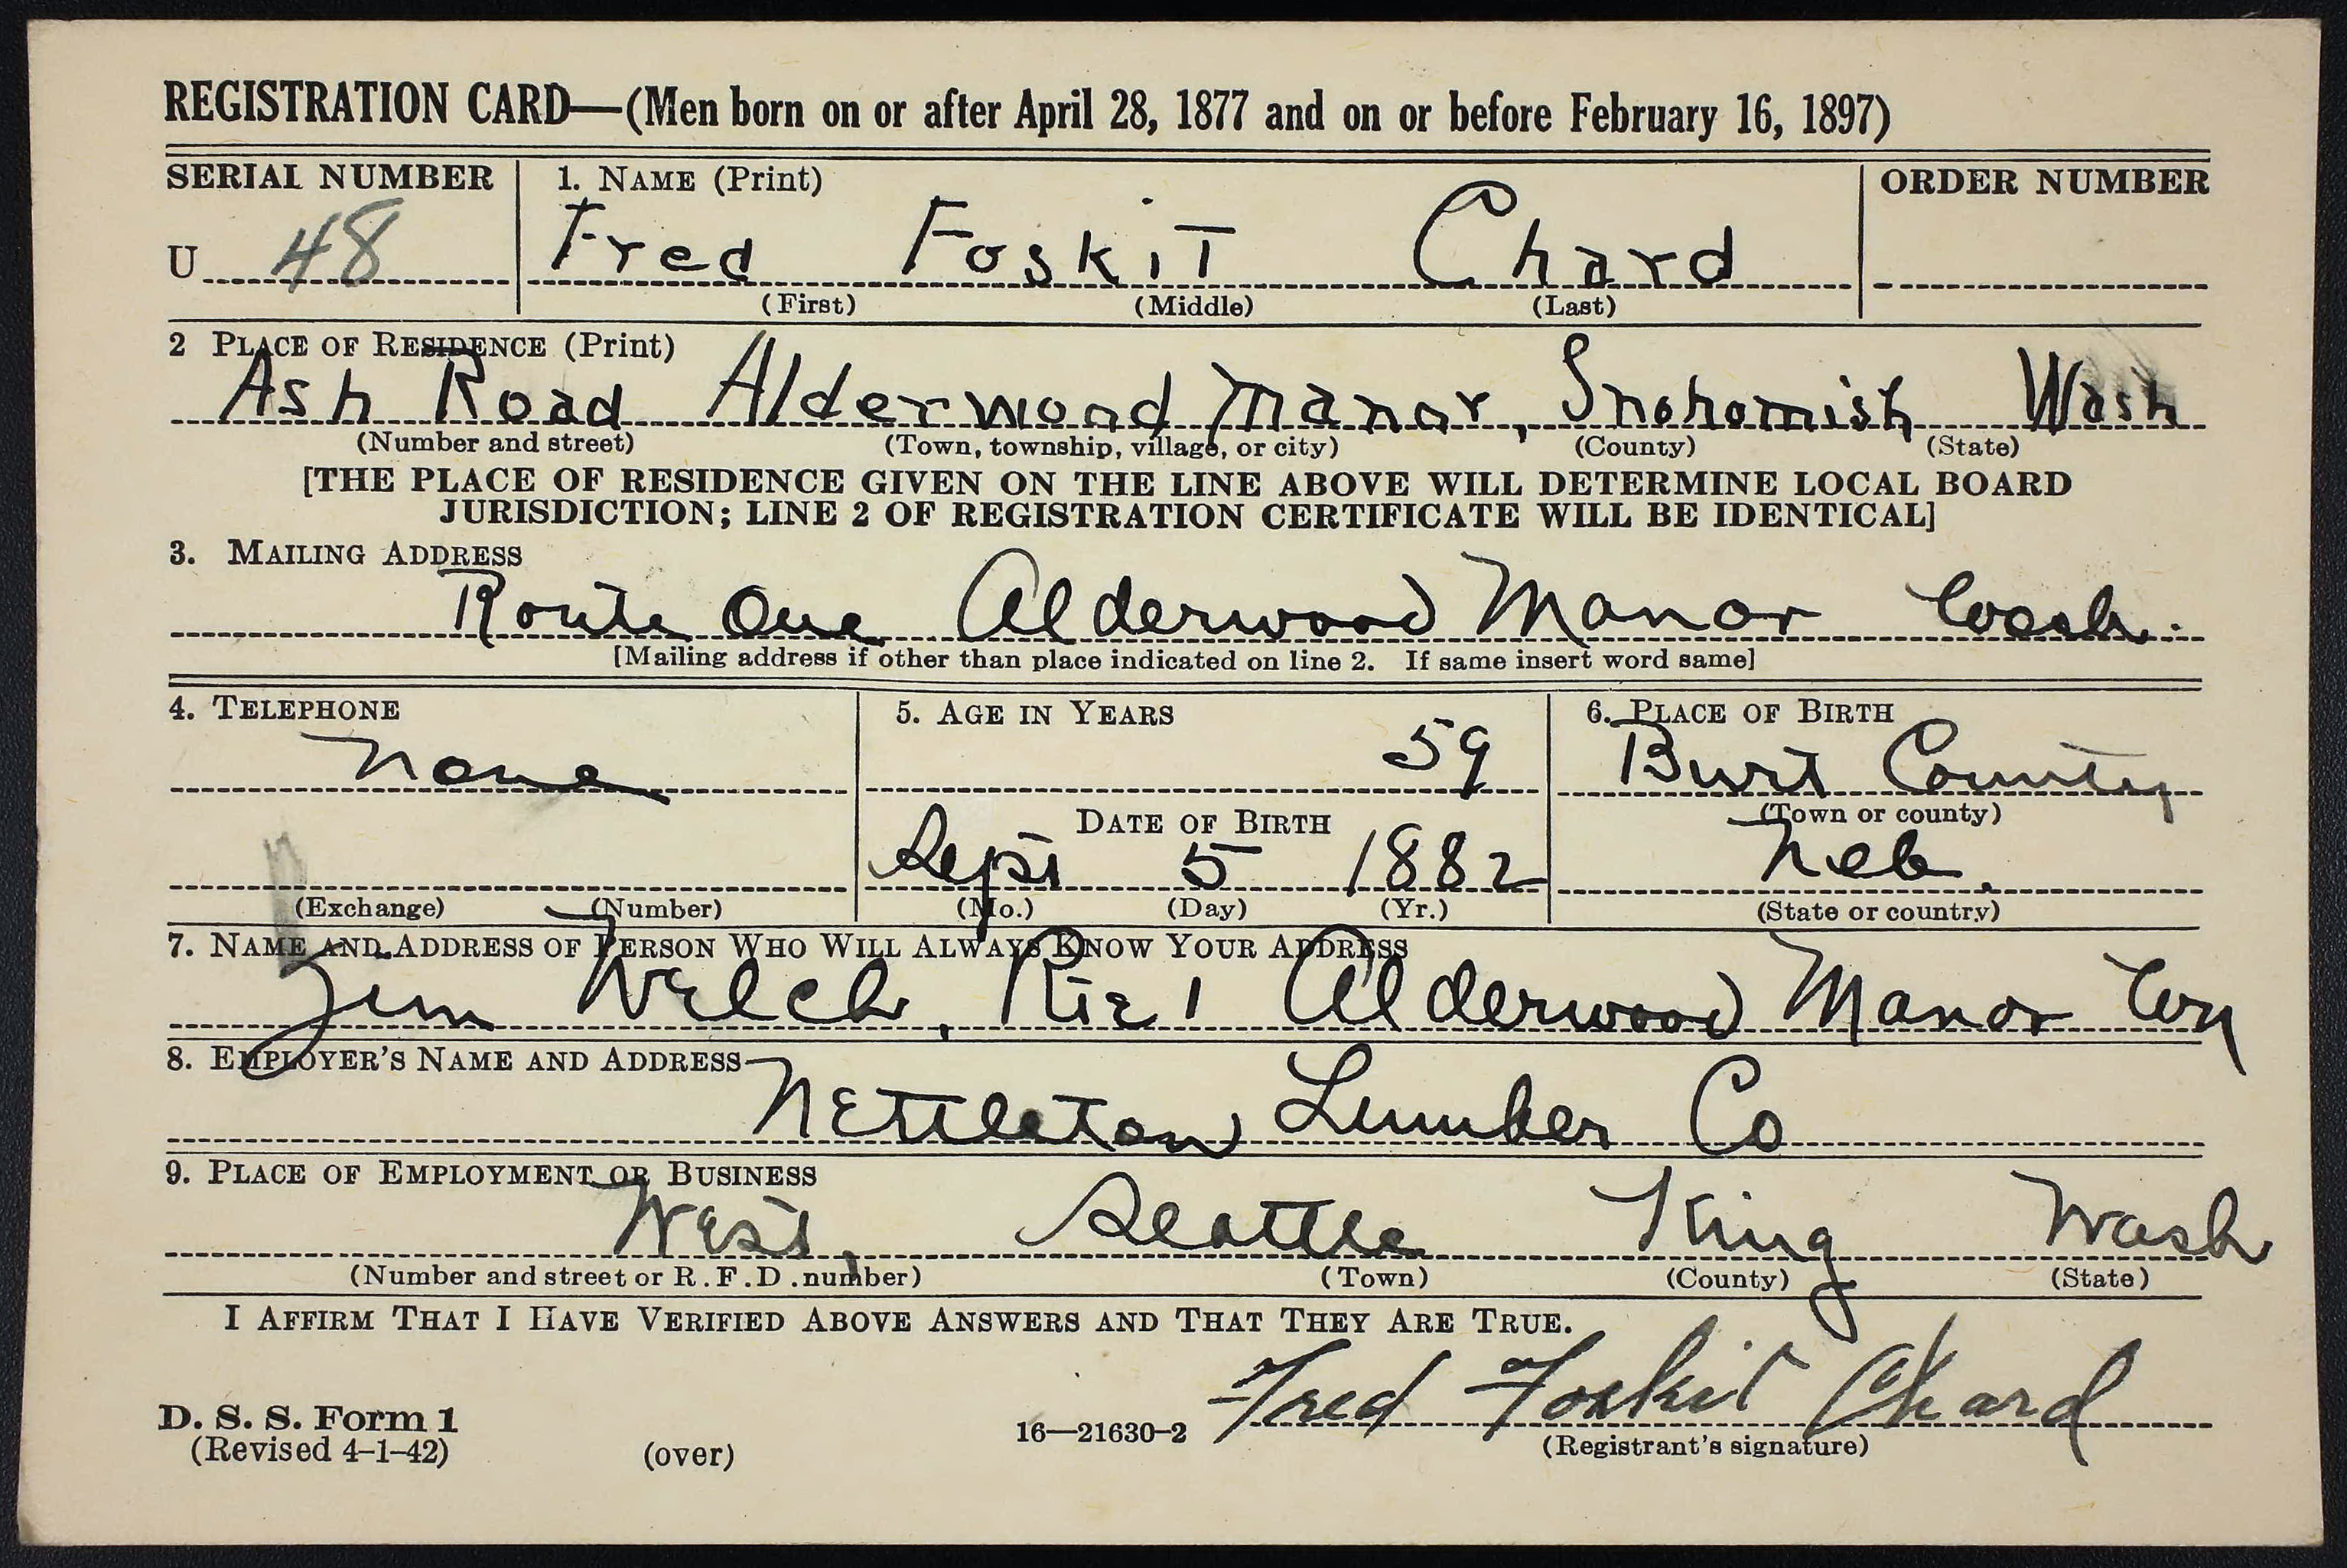 REGISTRATION CARD—(Men born on or after April 28, 1877 and on or before February 16, 1897)
SERIAL NUMBER 1. NAME (Print) ORDER NUMBER
U 48 Fred Foskit Chard
(First) (Middle) (Last)
2 PLACE OF RESIDENCE (Print)
Ash Road Alderwood Manor, Snohomish Wash
(Number and street) (Town, township, village, or city) (County) (State)
[THE PLACE OF RESIDENCE GIVEN ON THE LINE ABOVE WILL DETERMINE LOCAL BOARD
JURISDICTION; LINE 2 OF REGISTRATION CERTIFICATE WILL BE IDENTICAL]
3. MAILING ADDRESS
Route One Alderwood Manor Wash.
[Mailing address if other than place indicated on line 2. If same insert word same]
4. TELEPHONE 5. AGE IN YEARS 6. PLACE OF BIRTH
None 59 Burt County
DATE OF BIRTH (Town or county)
Sept 5 1882 Neb.
(Exchange) (Number) (Mo.) (Day) (Yr.) (State or country)
7. NAME AND ADDRESS OF PERSON WHO WILL ALWAYS KNOW YOUR ADDRESS
Jim Welch, Rte 1 Alderwood Manor Wn
8. EMPLOYER'S NAME AND ADDRESS
Nettleton Lumber Co
9. PLACE OF EMPLOYMENT OR BUSINESS
West, Seattle King Wash
(Number and street or R.F.D. number) (Town) (County) (State)
I AFFIRM THAT I HAVE VERIFIED ABOVE ANSWERS AND THAT THEY ARE TRUE.
Fred Foskit Chard
D. S. S. Form 1
(Revised 4-1-42) (over) 16—21630-2 (Registrant's signature)